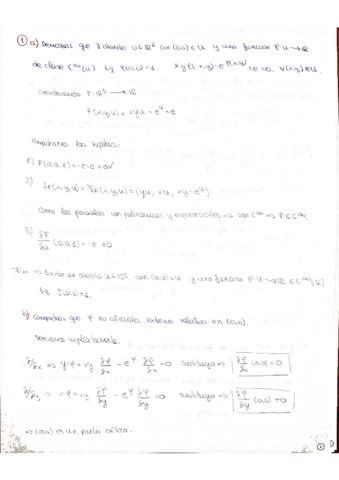 ① a) Demostrar que ∃ abierto U⊆ℝ² con (0,0)∈U y una función φ: U→ℝ
de clase C^∞(U) tq φ(0,0)=1. xyφ(x,y)-e^φ(x,y)+e=0. ∀(x,y)∈U.
Consideramos F: ℝ³ → ℝ
F(x,y,u) = xyu - e^u + e
Comprobamos las hipótesis:
1) F(0,0,1) = -e+e=0 ✓
2) JF(x,y,u) = ∇F(x,y,u) = (yu, xu, xy-e^u)
Como las parciales son polinómicas y exponenciales ⇒ son C^∞ ⇒ F∈C^∞.
3) ∂F/∂u (0,0,1) = -e ≠0
⇒ Existe un abierto U⊆ℝ² con (0,0)∈U y una función φ: U→ℝ ∈C^∞(U)
tq φ(0,0)=1.
b) Comprobar que φ no alcanza extremo relativo en (0,0).
Derivamos implícitamente.
∂/∂x ⇒ yφ + xy ∂φ/∂x - e^φ ∂φ/∂x = 0 sustituyo ⇒ ∂φ/∂x (0,0) = 0
∂/∂y ⇒ xφ + xy ∂φ/∂y - e^φ ∂φ/∂y = 0 sustituyo ⇒ ∂φ/∂y (0,0) = 0
⇒ (0,0) es un punto crítico.
①